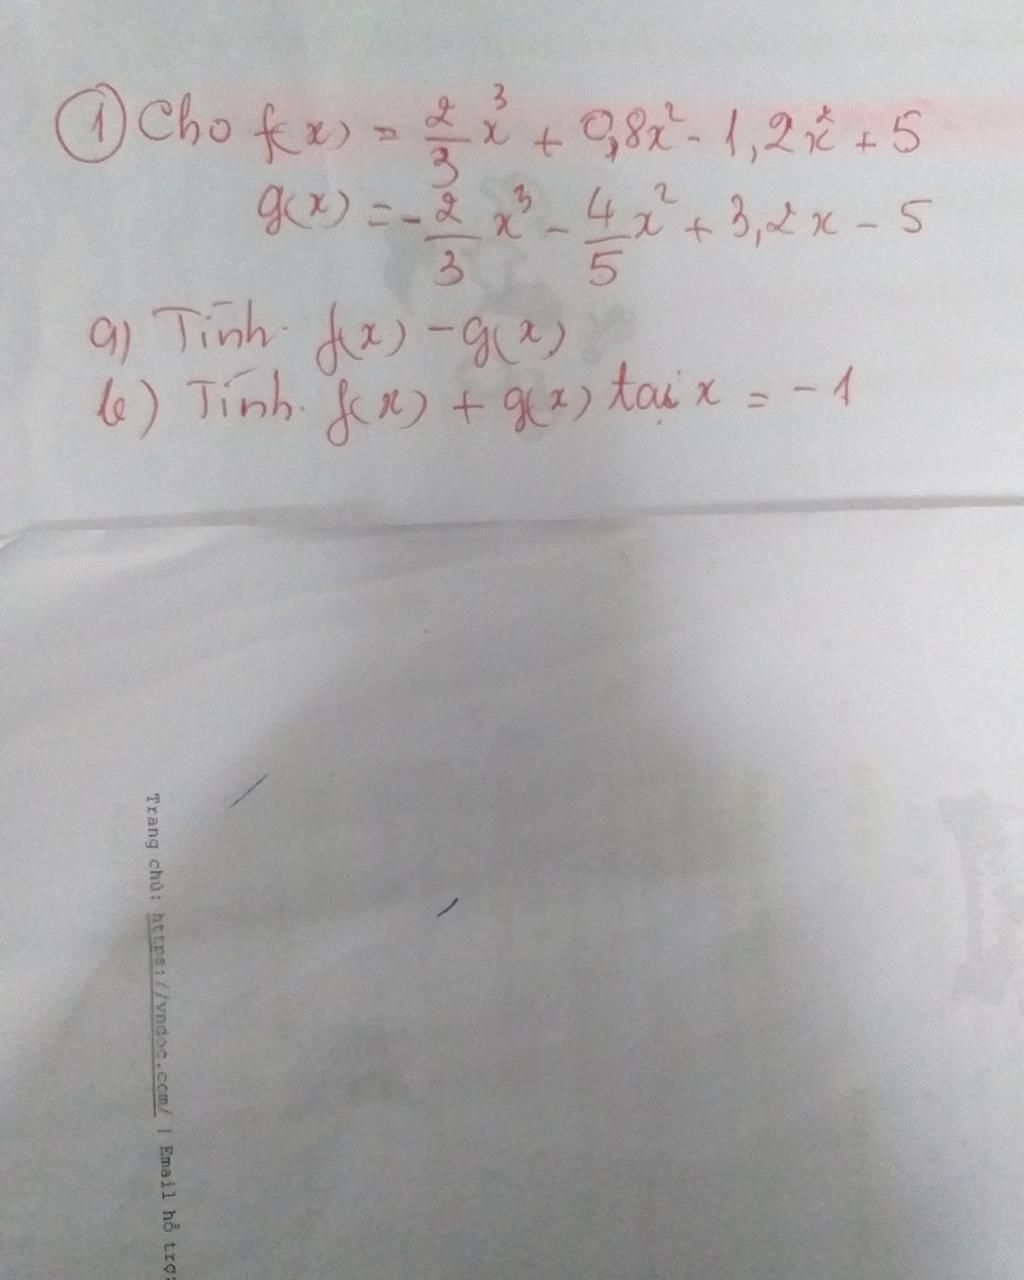 ① Cho f(x) = 2/3 x³ + 0,8x² - 1,2x + 5
g(x) = -2/3 x³ - 4/5 x² + 3,2x - 5
a) Tính f(x) - g(x)
b) Tính f(x) + g(x) tại x = -1
Trang chủ: https://vndoc.com/ | Email hỗ trợ: